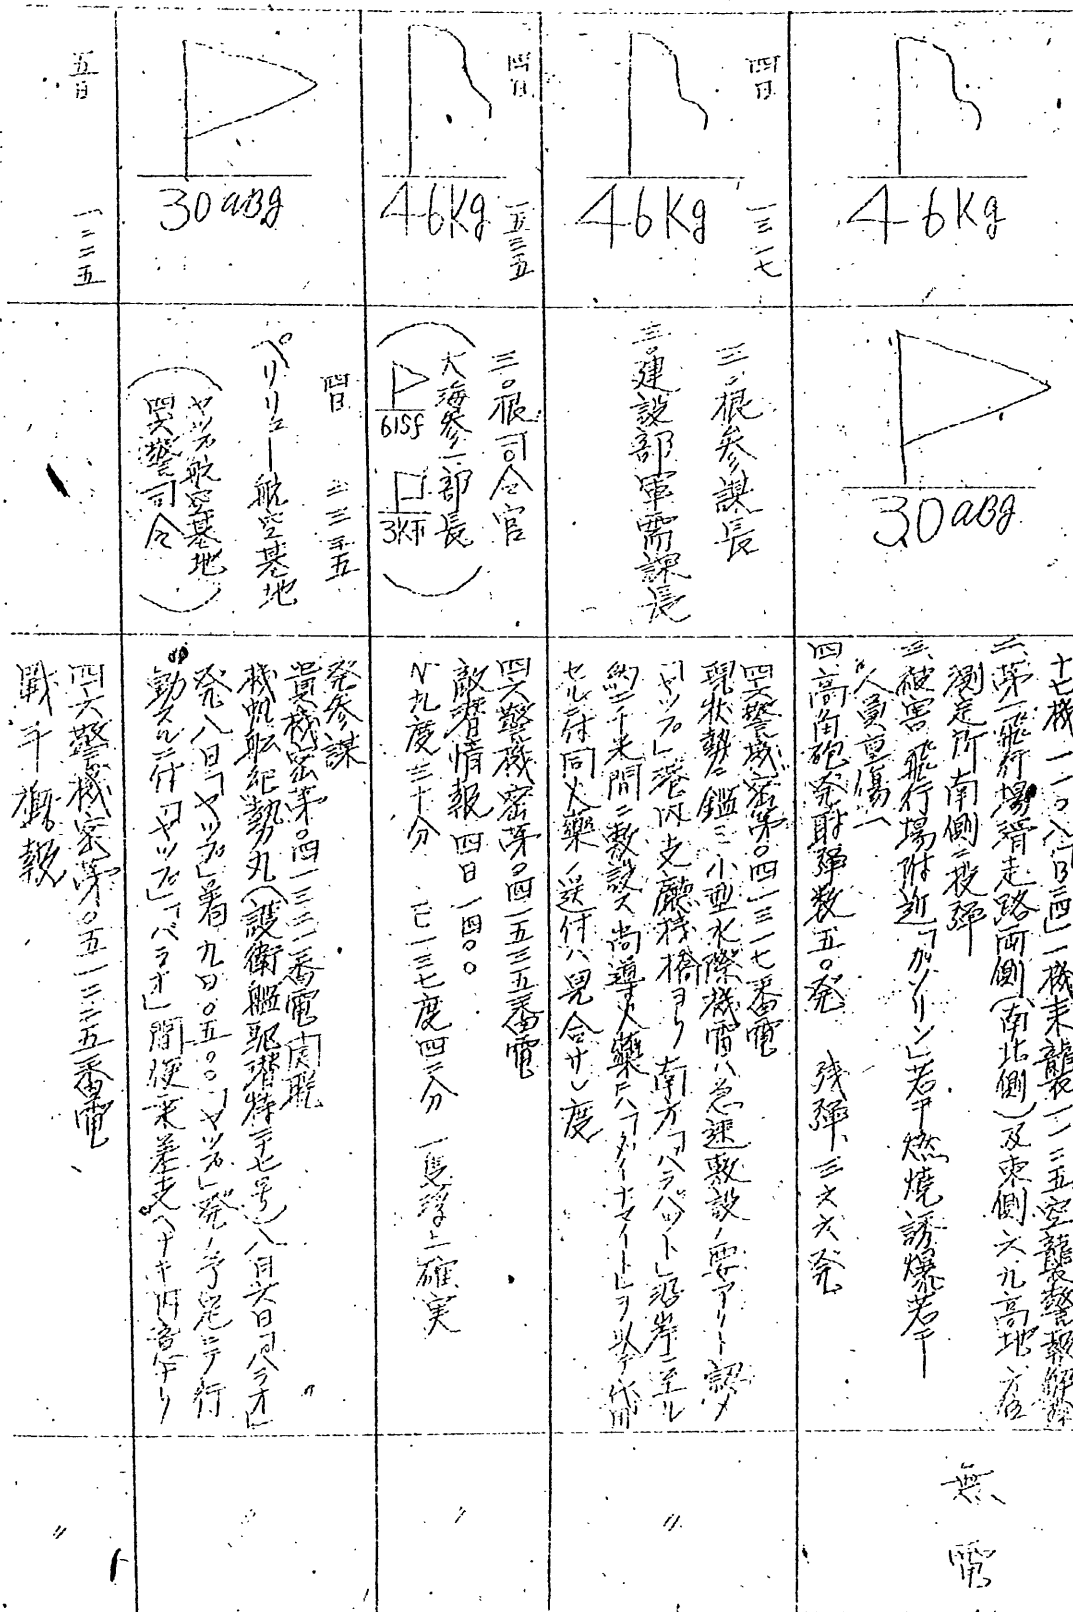 46Kg
30aBg
十七機 一一〇八「B二四」一機来襲一一二五空襲警報解除
二、第一飛行場滑走路両側(南北側)及東側六九高地方位
測定所南側ニ投弾
三、被害 飛行場附近「ガソリン」若干燃焼誘爆若干
人員重傷一
四、高角砲発射弾数五〇発 残弾三六六発
無電
四日 一三一七
46Kg
三〇根参謀長
三〇建設部軍需課長
四六警機密第〇四一三一七番電
現状勢ニ鑑ミ小型水際機雷ハ急速敷設ノ要アリト認メ
「ヤップ」港内支廳桟橋ヨリ南方「ハラバット」沿岸ニ至ル
約二千米間ニ敷設ス尚導火薬ハ「ダイナマイト」ヲ以テ代用
セルニ付同火薬ノ送付ハ見合サレ度
〃
四日 一五三五
46Kg
三〇根司令官
(大海参一部長
61Sg 3KF)
四六警機密第〇四一五三五番電
敵潜情報 四日一四〇〇
N九度三十分 E一三七度四二分 一隻浮上確実
〃
30aBg
四日 二三三五
ペリリュー航空基地
(ヤップ航空基地
四六警司令)
発参謀
貴機密第〇四一三二二番電関聯
機帆船紀勢丸(護衛艦駆潜特二七号)八月六日「パラオ」
発八日「ヤップ」着九日〇五〇〇「ヤップ」発ノ予定ニテ行
動スルニ付「ヤップ」「パラオ」間便乗差支ヘナキ内意ナリ
〃
五日 一二二五
四六警機密第〇五一二二五番電
戦斗概報
〃